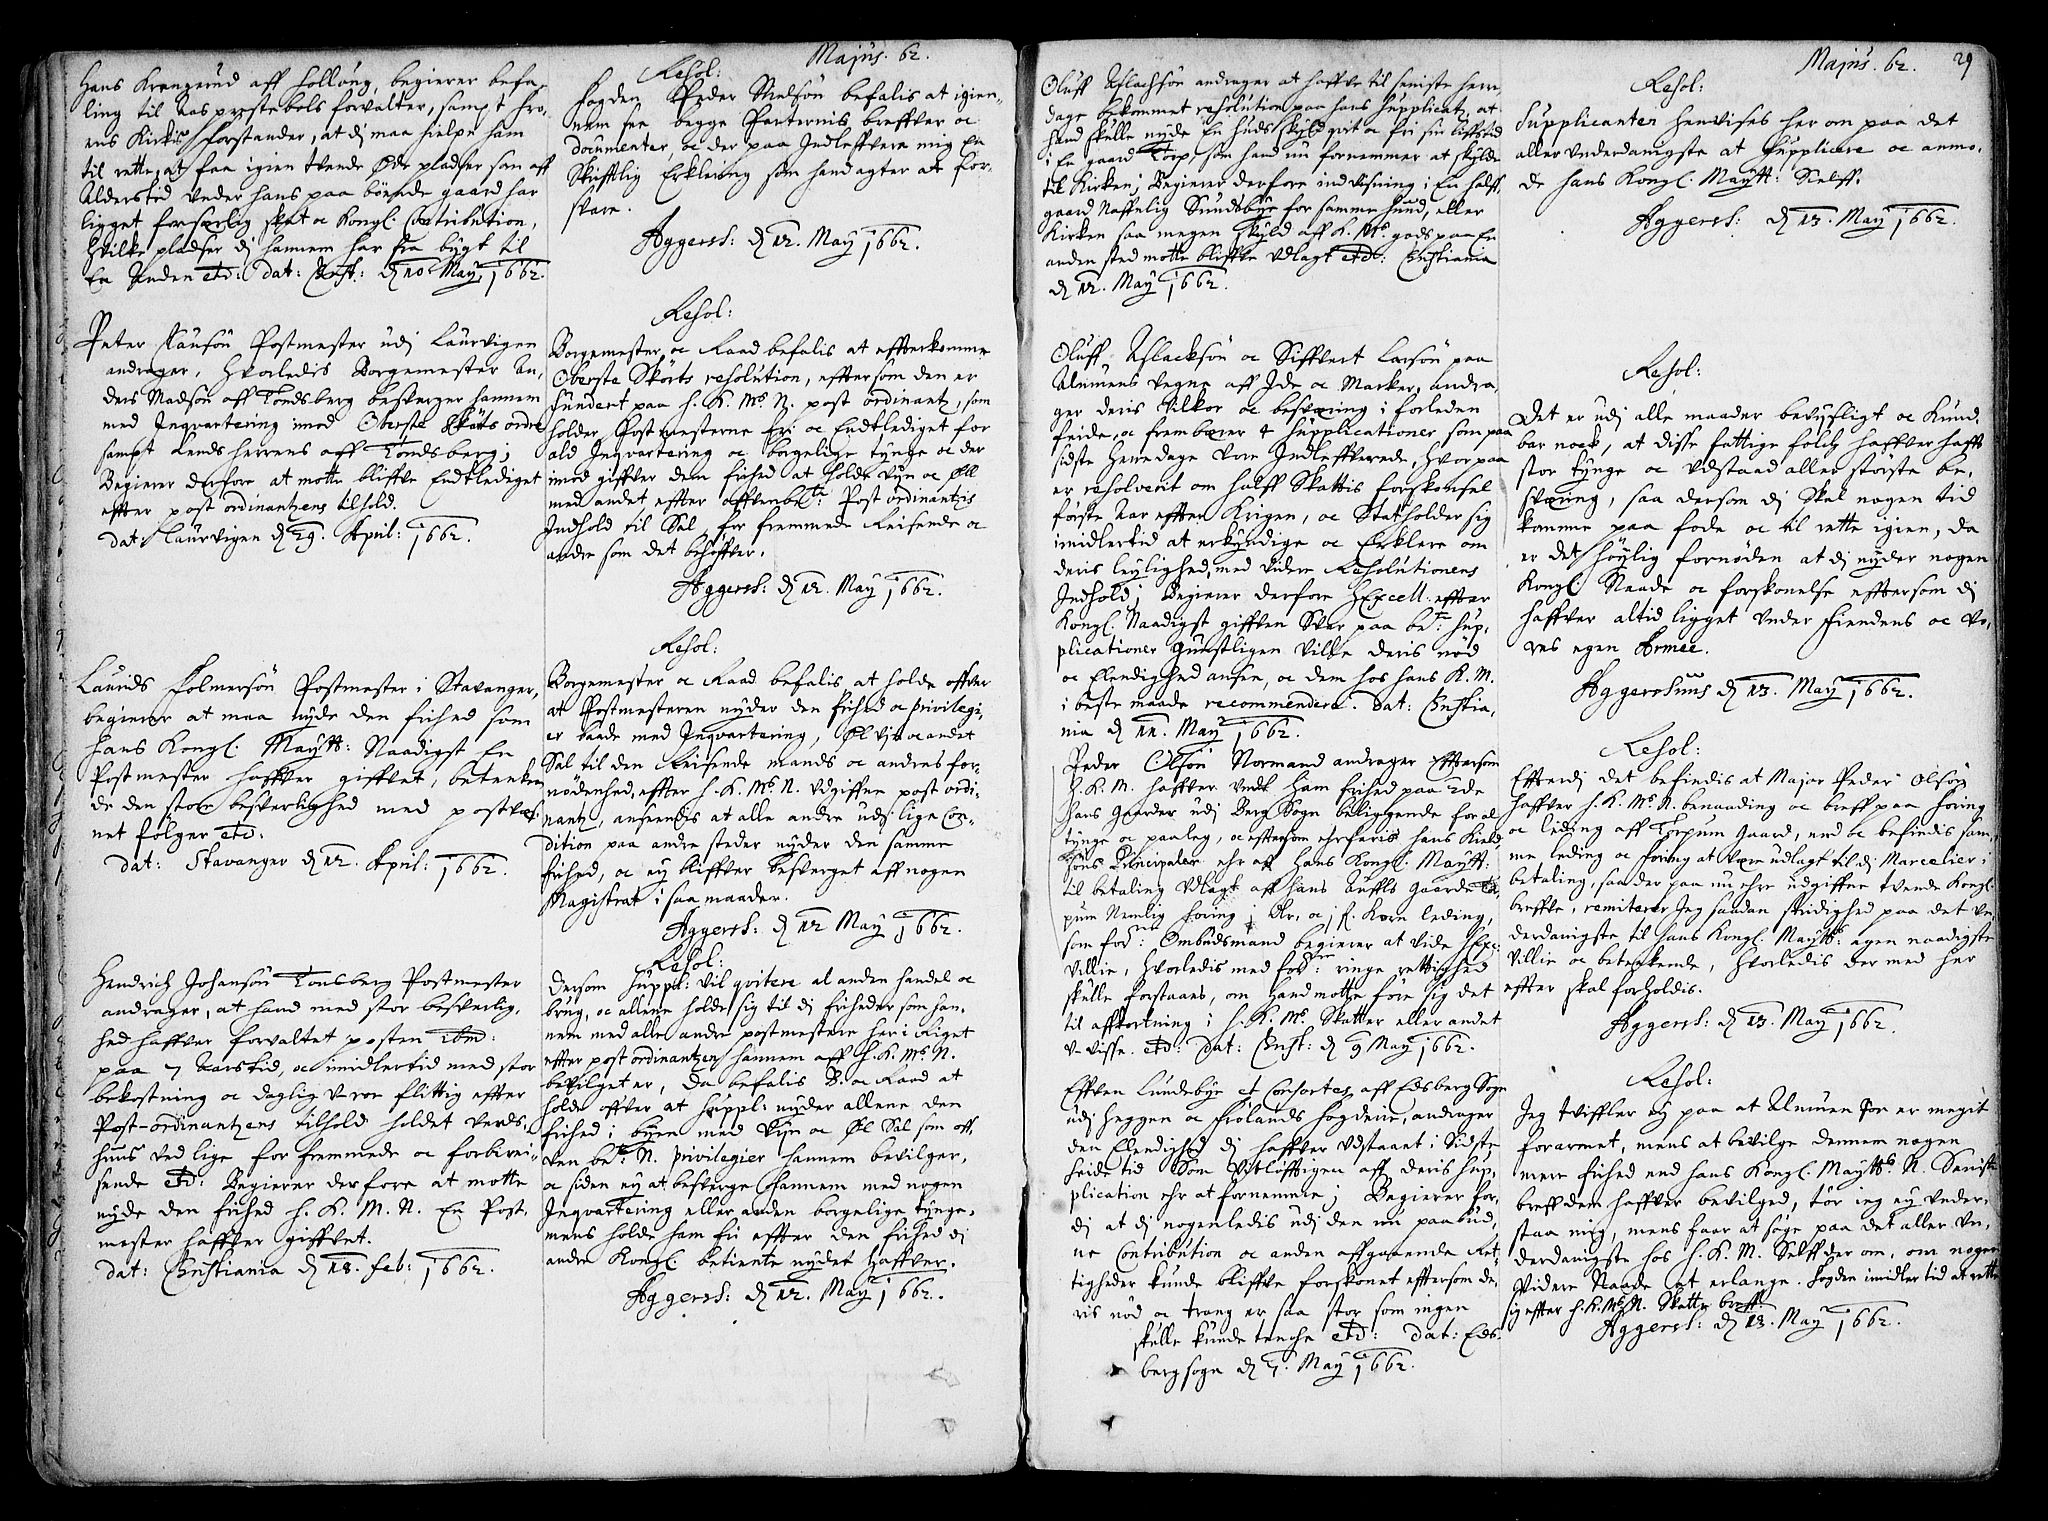 Majus. 62.
Hans Krengerud aff Holloug, begierer befa-
ling til Aas prestebols forvalter, sampt Kro-
ens Kirkis forstander, at dj maa hielpe ham
til rette, at faa igien tvende Øde pladser som aff
Alders tid under hans paa boende gaard har
ligget forsørlig skat oc Kongl. Contribution,
hvilke pladser dj hannem har fra bygt til
En Anden etc: dat: Christ: dj 10 May 1662.
Peter Clausøn Postmester udj Laurvigen
andrager, hvorledis Borgemester An-
ders Madsøn aff Tondsberg besverger hannem
med Inqvartering imod Oberste Skøts ordre
sampt Lendsherrens aff Tondsberg;
Begierer derfore at motte bliffve Endtlediget
efter post ordinantzens tilhold.
dat: Laurvigen dj 29. April: 1662.
Laurids Folmersøn Postmester i Stavanger,
begierer at maa nyde den frihed som
Hans Kongl. Maytt: Naadigst En
Postmester haffver giffvet, betenken
de den store besverlighed med postvæs
net følger etc:
dat: Stavanger dj 12. April: 1662.
Hendrich Johansøn Tonsberg Postmester
andrager, at hand med stor besverlig-
hed haffver forvaltet posten ibm:
paa 7 Aars tid, oc imidlertid med stor
bekostning oc daglig v-roe flittig effter
Post-ordinantzens tilhold holdet verds-
huus ved lige for fremmede oc forbirei-
sende etc: Begierer derfore at motte
nyde den frihed H. K. M. N. En Post-
mester haffver giffvet.
dat: Christiania dj 18. feb: 1662.
Resol:
Fogden Peder Nielsøn befalis at igien-
nem see begge Parternis breffver oc
documenter, oc der paa Indleffvere mig En
Skrifftlig Erklering som hand agter at for-
svare.
Aggersh: dj 12. May 1662.
Resol:
Borgemester oc Raad befalis at effterkomme
Oberste Skøtts resolution, efftersom den er
fundert paa H. K. Ms. N. post ordinantz, som
holder Postmesterne fri oc Endtlediget for
ald Inqvartering oc borgelige tynge oc der
imod giffver dem frihed at holde Vijn oc Øll
med andet, effter offvenbete Post ordinantzis
Indhold til Sal, for fremmede Reisende oc
andre som det behøffver.
Aggersh: dj 12. May 1662.
Resol:
Borgemester oc Raad befalis at holde offver
at Postmesteren nyder den frihed oc privilegi-
er baade med Inqvartering, Øl vijn oc andet
Sal til den Reisende mands oc andres for-
nødenhed, effter H. K. Ms. N. Udgiffne post ordi-
nantz, anseendis at alle andre udj lige Con-
dition paa andre steder nyder den samme
frihed, oc ey bliffver besverget aff nogen
Magistrat i saa maader.
Aggersh: dj 12 May 1662.
Resol:
Dersom Suppl: vil qvitere al anden handel oc
brug, oc allene holde sig til dj friheder som han-
nem med alle andre postmestere her i Riget
effter post ordinantzen hannem aff H. K. Ms. N.
bevilget er, da befalis B. oc Raad at
holde offver at Suppl: nyder allene den
frihed i byen med Vijn oc Øl Sal som off-
ven bete: N. privilegier hannem bevilger,
oc siden ey at besverge hannem med nogen
Inqvartering eller anden borgelige tynge,
mens holde ham fri effter den frihed dj
andre Kongl. betiente nydet haffver.
Aggersh: dj 12. May 1662.
Majus. 62. 29
Oluff Aslachsøn andrager at haffve til seniste herre
dage bekommet resolution paa hans Supplicatz, at
hand skulle nyde En huds skyld qvit oc fri sin liffs tid
i En gaard Torp, som hand nu fornemmer at skylde
til Kirken; Begierer derfore indvisning i En halff
gaard Naffnlig Sundsbye for samme hud, eller
Kirken saa megen skyld aff K. Ms. gods paa En
anden sted motte bliffve Udlagt etc: Christiania
dj 12. May 1662.
Oluff Aslacksøn oc Siffvert Larsøn paa
Almuens vegne aff Ide oc Marker, andra-
ger deris Vilkor oc besværing i forleden
feide, oc frembærer 4 Supplicationer som paa
sidste Herredage vare Indleffverede, hvor paa
er resolverit om halff Skattis forskonsel
første Aar effter Krigen, oc Statholder sig
imidlertid at erkyndige oc Erklere om
deris leylighed, med videre Resolutionens
Indhold; Begierer derfore H Excell. effter
Kongl. Naadigst giffven Svar paa bete: Sup-
plicationer gunstligen Ville deris nød
oc Elendighed ansee, oc dem hos hans K. M.
i beste maade recommendere. dat: Christia-
nia dj 12. May 1662.
Peder Olsøn Normand andrager Effersom
H. K. M. haffver undt ham frihed paa 2de
hans Gaarder udj Berg Sogn beliggende for al
tynge oc paaleg, oc effersom ehrfaris hans
Principaler ehr aff Hans Kongl. Maytt:
til betaling Udlagt aff hans Gaard Tor-
pum Nemlig foring j dlr. oc j f. Korn leding,
som forne: Ombudsmand begierer at vide H Exc:
Villie, hvorledis med forne: ringe rettighed
skulle forstaaes, om hand motte føre sig det
til affkortning i H. K. Ms. Skatter eller andet
v-visse. etc: dat: Christ: dj 9 May 1662.
Effven Lundebye et Consortes aff Edsberg Sogn
udj Heggen oc Frølands fogderie, andrager
den Elendighed dj haffver Udstaaet i Sidste
feide tid Som Vitløfftigen aff deris Sup-
plication ehr at fornemme; Begierer for-
dj at dj nogenledis udj den nu paabud-
ne Contribution oc anden affgaaende Ret-
tigheder kunde bliffve forskonet effersom de-
ris nød oc trang er saa stor som ingen
skulle kunde tenche etc: dat: Eds-
berg sogn dj 7. May 1662.
Resol:
Supplicanten henvises her om paa det
aller underdanigste at supplicere oc anmo-
de hans Kongl. Maytt: Selff.
Aggersh: dj 13. May 1662.
Resol:
Det er udj alle maader bevisligt oc Kund-
bar nock, at disse fattige folch haffver hafft
stor tynge oc udstaad aller største be-
sværing, saa dersom dj skal nogen tid
komme paa fode oc til rette igien, da
er det høylig fornøden at dj nyder nogen
Kongl. Naade oc forskonelse effersom dj
haffver altid ligget under fiendens oc vo-
res egen Armee.
Aggershuus dj 13. May 1662.
Resol:
Efterdj det befindis at Major Peder Olsøn
haffver H. K. Ms. N. benaading oc breff paa foring
oc leding aff Torpum Gaard, oc befindis sam-
me leding oc foring at være udlagt til dj Marcelier
betaling, saa der paa nu ehre udgiffne tvende Kongl.
breffve, remiterer Jeg saadan stridighed paa det un-
derdanigste til hans Kongl. Maytts: egen naadigste
Villie oc betenkende, hvorledis der med her
effter skal forholdis.
Aggersh: dj 13. May 1662.
Resol:
Jeg tviffler ey paa at Almuen Jo er megit
forarmet, mens at bevilge dennem nogen
mere frihed end hans Kongl. Maytts. N. Seniste
breff dem haffver bevilged, tør jeg ey under-
staa mig, mens faar at søge paa det aller un-
derdanigste hos H. K. M. Selff der om, om nogen
Videre Naade at erlange. Fogden imidler tid at rette
sig effter H. K. Ms. N. Skatte breff.
Aggersh: dj 13. May 1662.